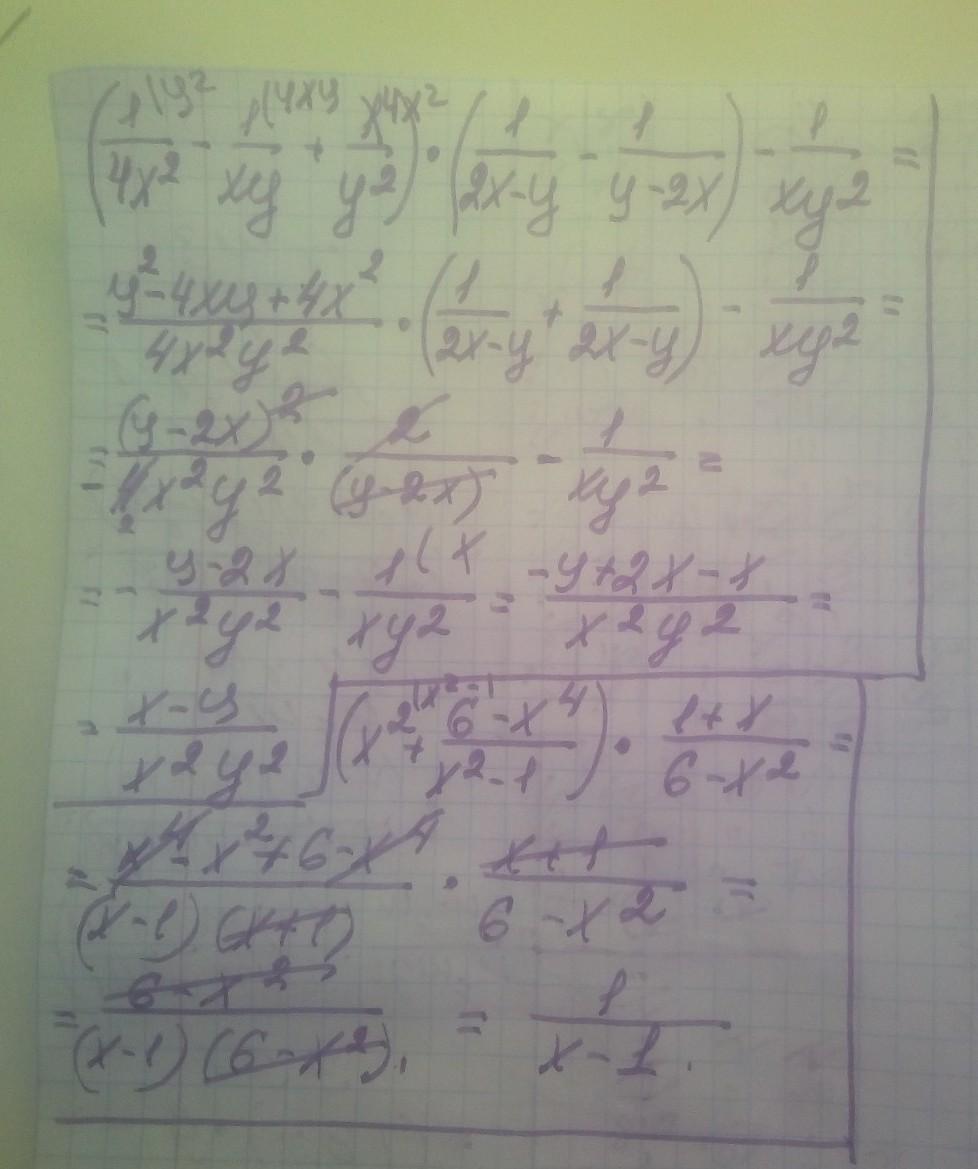 (1|y²/4x² - 1(4xy/xy + 1(4x²/y²) · (1/2x-y - 1/y-2x) - 1/xy² =
= y²-4xy+4x²/4x²y² · (1/2x-y + 1/2x-y) - 1/xy² =
= -(y-2x)²/4x²y² · 2/(y-2x) - 1/xy² =
2
= - y-2x/x²y² - 1(x/xy² = -y+2x-x/x²y² =
= x-y/x²y²
(x²(x²-1 + 6-x⁴/x²-1) · 1+x/6-x² =
= x⁴-x²+6-x⁴/(x-1)(x+1) · x+1/6-x² =
= 6-x²/(x-1)(6-x²). = 1/x-1.